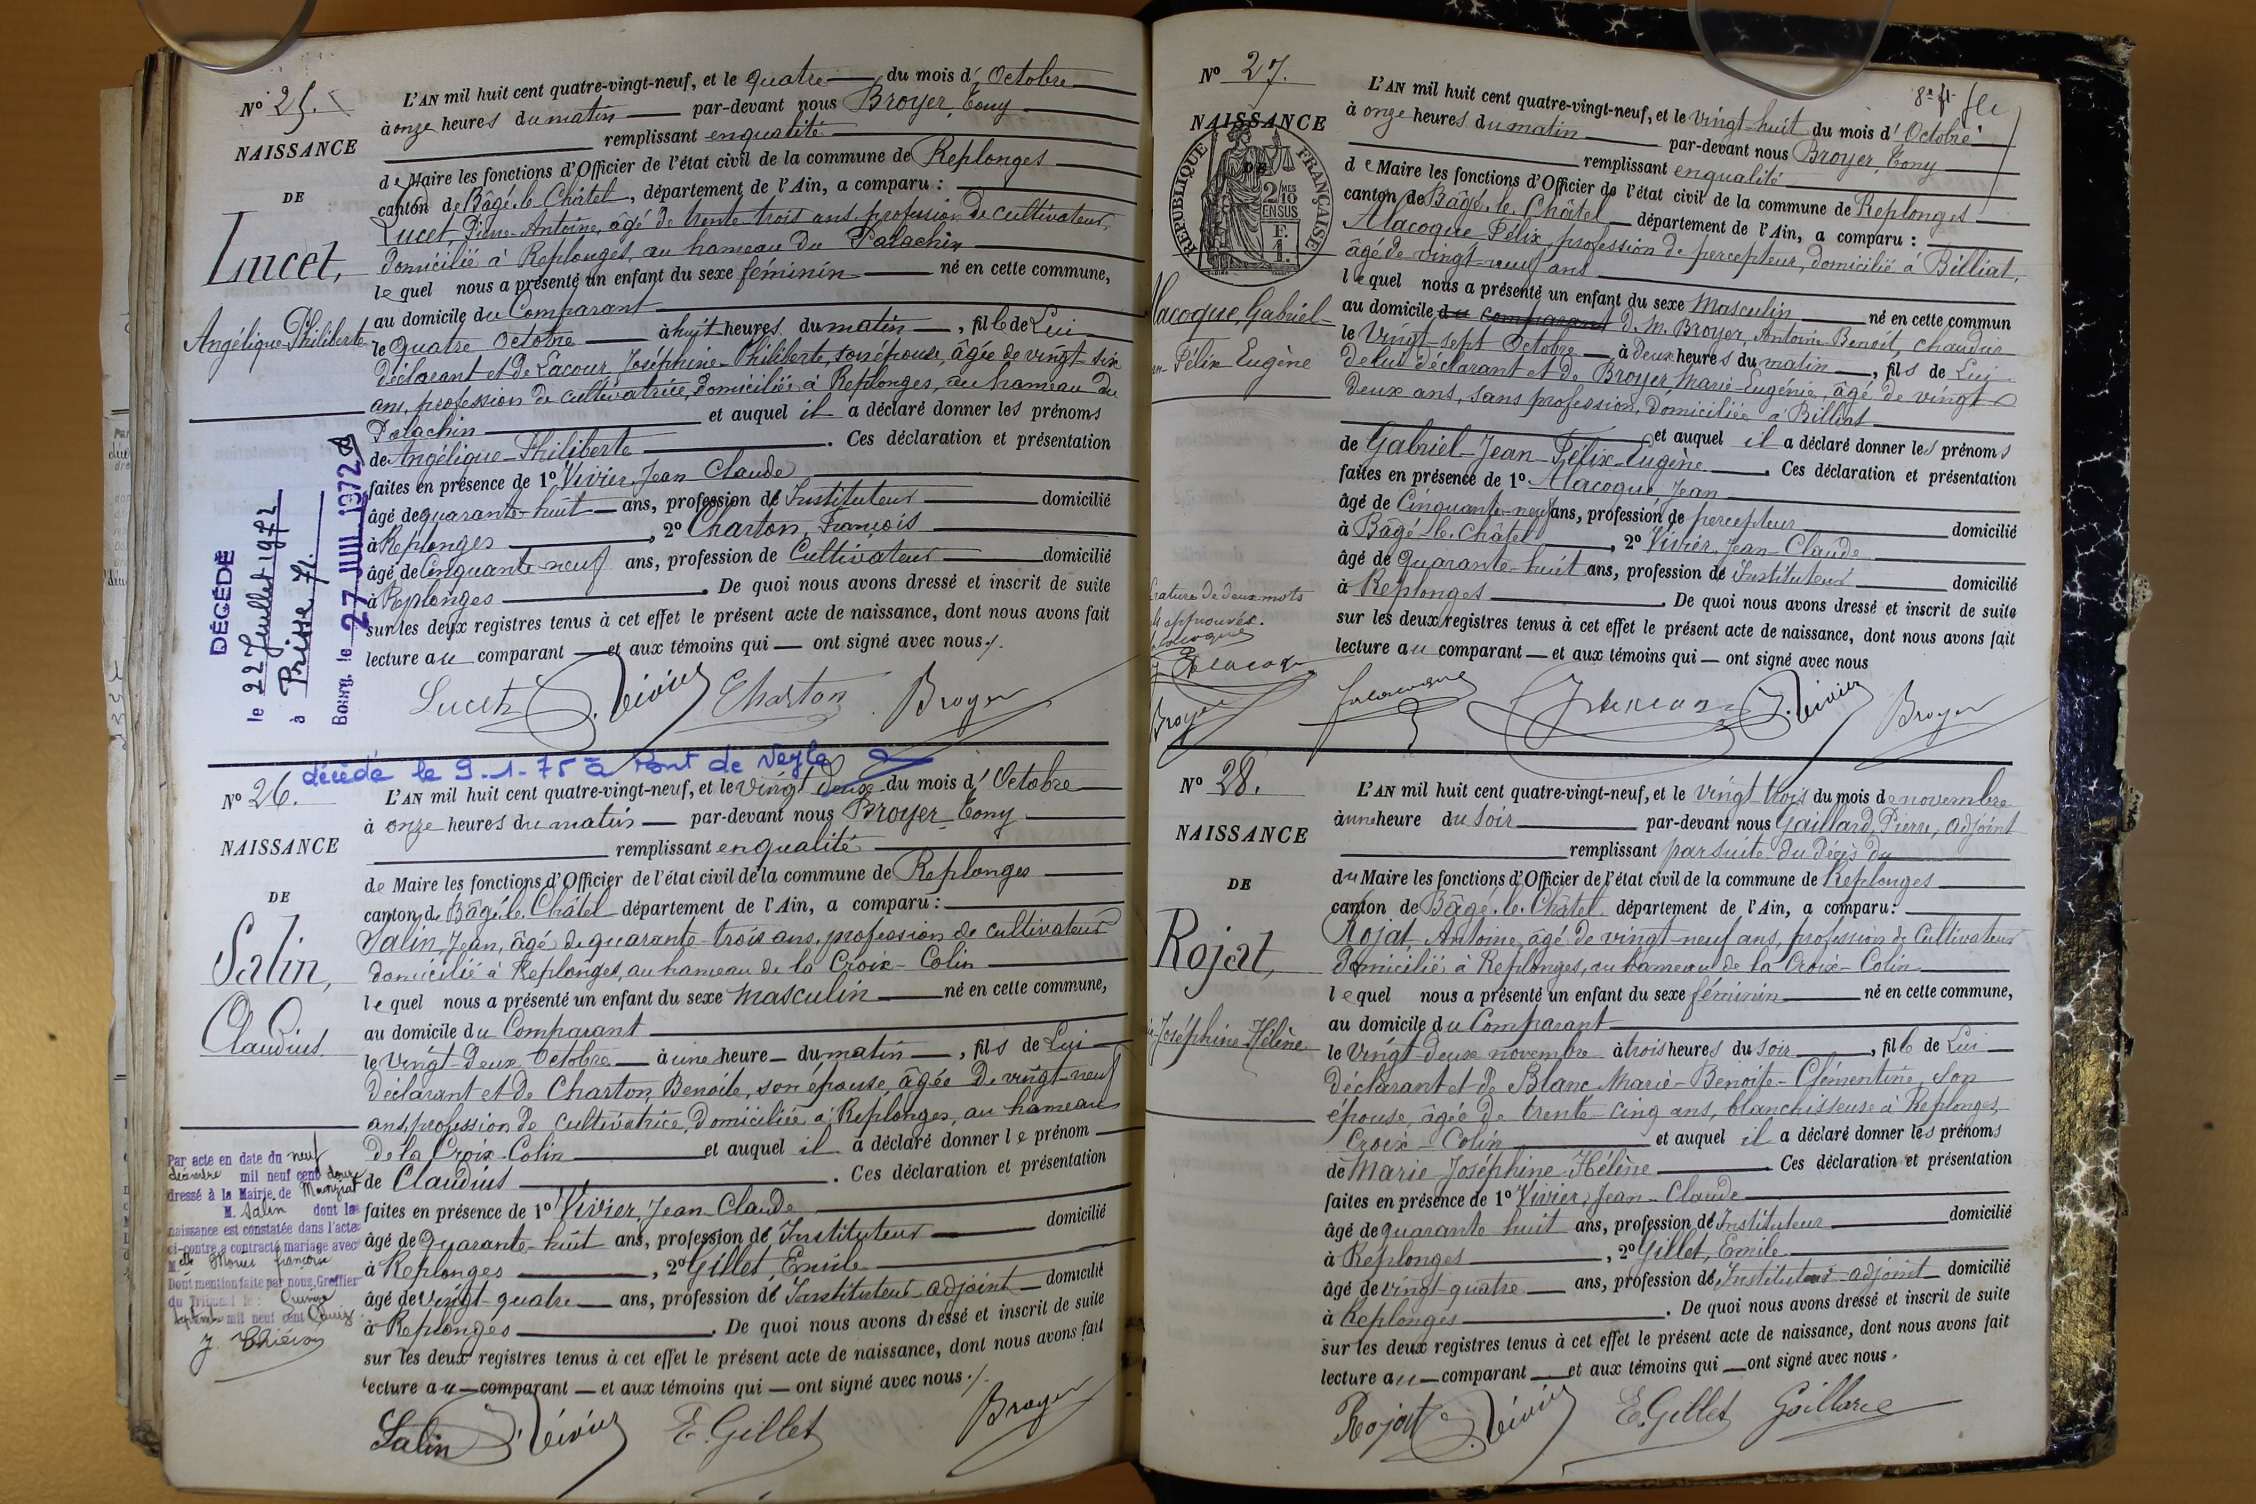 N° 25.
NAISSANCE
DE
Lucet,
Angélique Philiberte
L'AN mil huit cent quatre-vingt-neuf, et le quatre du mois d'Octobre
à onze heures du matin par-devant nous Broyer, Tony
remplissant en qualité
de Maire les fonctions d'Officier de l'état civil de la commune de Replonges
canton de Bâgé-le-Châtel, département de l'Ain, a comparu :
Lucet Pierre-Antoine, âgé de trente-trois ans, profession de cultivateur,
domicilié à Replonges, au hameau du Palachin
lequel nous a présenté un enfant du sexe féminin né en cette commune,
au domicile du Comparant
le quatre Octobre à huit heures du matin, fille de Lui
déclarant et de Lacour, Joséphine-Philiberte, son épouse, âgée de vingt-six
ans, profession de cultivatrice, domiciliée à Replonges, au hameau du
Palachin et auquel il a déclaré donner les prénoms
de Angélique-Philiberte. Ces déclaration et présentation
faites en présence de 1° Vivier, Jean Claude
âgé de quarante-huit ans, profession de Instituteur domicilié
à Replonges, 2° Charton, François
âgé de Cinquante-neuf ans, profession de Cultivateur domicilié
à Replonges. De quoi nous avons dressé et inscrit de suite
sur les deux registres tenus à cet effet le présent acte de naissance, dont nous avons fait
lecture au comparant et aux témoins qui ont signé avec nous./.
Lucet J. Vivier Charton Broyer
DÉCÉDÉ
le 22 Juillet 1972
à Prisse 71.
Bourg, le 27 JUIL 1972
décédé le 9-1-75 à Pont de Veyle
N° 26.
NAISSANCE
DE
Salin,
Claudius
L'AN mil huit cent quatre-vingt-neuf, et le vingt deux du mois d'Octobre
à onze heures du matin par-devant nous Broyer, Tony
remplissant en qualité
de Maire les fonctions d'Officier de l'état civil de la commune de Replonges
canton de Bâgé-le-Châtel département de l'Ain, a comparu :
Salin, Jean, âgé de quarante-trois ans, profession de cultivateur
domicilié à Replonges, au hameau de la Croix-Colin
lequel nous a présenté un enfant du sexe masculin né en cette commune,
au domicile du Comparant
le vingt-deux Octobre à une heure du matin, fils de Lui
déclarant et de Charton, Benoite, son épouse, âgée de vingt-neuf
ans, profession de cultivatrice, domiciliée à Replonges, au hameau
de la Croix-Colin et auquel il a déclaré donner le prénom
de Claudius. Ces déclaration et présentation
faites en présence de 1° Vivier, Jean-Claude
âgé de quarante-huit ans, profession de Instituteur domicilié
à Replonges, 2° Gillet, Emile
âgé de vingt-quatre ans, profession de Instituteur-adjoint domicilié
à Replonges. De quoi nous avons dressé et inscrit de suite
sur les deux registres tenus à cet effet le présent acte de naissance, dont nous avons fait
lecture au comparant et aux témoins qui ont signé avec nous./.
Salin J. Vivier E. Gillet Broyer
Par acte en date du neuf
décembre mil neuf cent douze
dressé à la Mairie de
M. Salin dont la
naissance est constatée dans l'acte
ci-contre a contracté mariage avec
M.elle françoise
Dont mention faite par nous, Greffier
du Tribunal le
mil neuf cent quinze
N° 27.
NAISSANCE
DE
RÉPUBLIQUE FRANÇAISE
2 MES
10
EN SUS
F.
1.
lacoque, Gabriel-
Félix Eugène
L'AN mil huit cent quatre-vingt-neuf, et le vingt-huit du mois d'Octobre
à onze heures du matin par-devant nous Broyer, Tony
remplissant en qualité
de Maire les fonctions d'Officier de l'état civil de la commune de Replonges
canton de Bâgé-le-Châtel département de l'Ain, a comparu :
Alacoque Félix, profession de percepteur, domicilié à Billiat,
âgé de vingt-neuf ans
lequel nous a présenté un enfant du sexe Masculin né en cette commun
au domicile du comparant de M. Broyer, Antoine Benoit, chaudie
le Vingt-sept Octobre à deux heures du matin, fils de Lui
de lui déclarant et de Broyer Marie-Eugénie, âgé de vingt-
deux ans, sans profession, domiciliée à Billiat
et auquel il a déclaré donner les prénoms
de Gabriel-Jean-Félix-Eugène. Ces déclaration et présentation
faites en présence de 1° Alacoque, Jean
âgé de Cinquante-neuf ans, profession de percepteur domicilié
à Bâgé-le-Châtel, 2° Vivier, Jean-Claude
âgé de quarante-huit ans, profession de Instituteur domicilié
à Replonges. De quoi nous avons dressé et inscrit de suite
sur les deux registres tenus à cet effet le présent acte de naissance, dont nous avons fait
lecture au comparant et aux témoins qui ont signé avec nous
rature de deux mots
approuvée.
Alacoque
Broyer
J. Vivier Broyer
N° 28.
NAISSANCE
DE
Rojat,
Joséphine Hélène
L'AN mil huit cent quatre-vingt-neuf, et le vingt trois du mois de novembre
à une heure du soir par-devant nous Gaillard, Pierre, adjoint
remplissant par suite du décès du
du Maire les fonctions d'Officier de l'état civil de la commune de Replonges
canton de Bâgé-le-Châtel département de l'Ain, a comparu :
Rojat, Antoine, âgé de vingt-neuf ans, profession de Cultivateur
domicilié à Replonges, au hameau de la Croix-Colin
lequel nous a présenté un enfant du sexe féminin né en cette commune,
au domicile du Comparant
le vingt-deux novembre à trois heures du soir, fille de Lui
déclarant et de Blanc Marie-Benoite-Clémentine, son
épouse, âgée de trente-cinq ans, blanchisseuse à Replonges,
Croix-Colin et auquel il a déclaré donner les prénoms
de Marie-Joséphine-Hélène. Ces déclaration et présentation
faites en présence de 1° Vivier, Jean-Claude
âgé de quarante huit ans, profession de Instituteur domicilié
à Replonges, 2° Gillet, Emile
âgé de vingt-quatre ans, profession de Instituteur-adjoint domicilié
à Replonges. De quoi nous avons dressé et inscrit de suite
sur les deux registres tenus à cet effet le présent acte de naissance, dont nous avons fait
lecture au comparant et aux témoins qui ont signé avec nous.
Rojat J. Vivier E. Gillet Gaillard